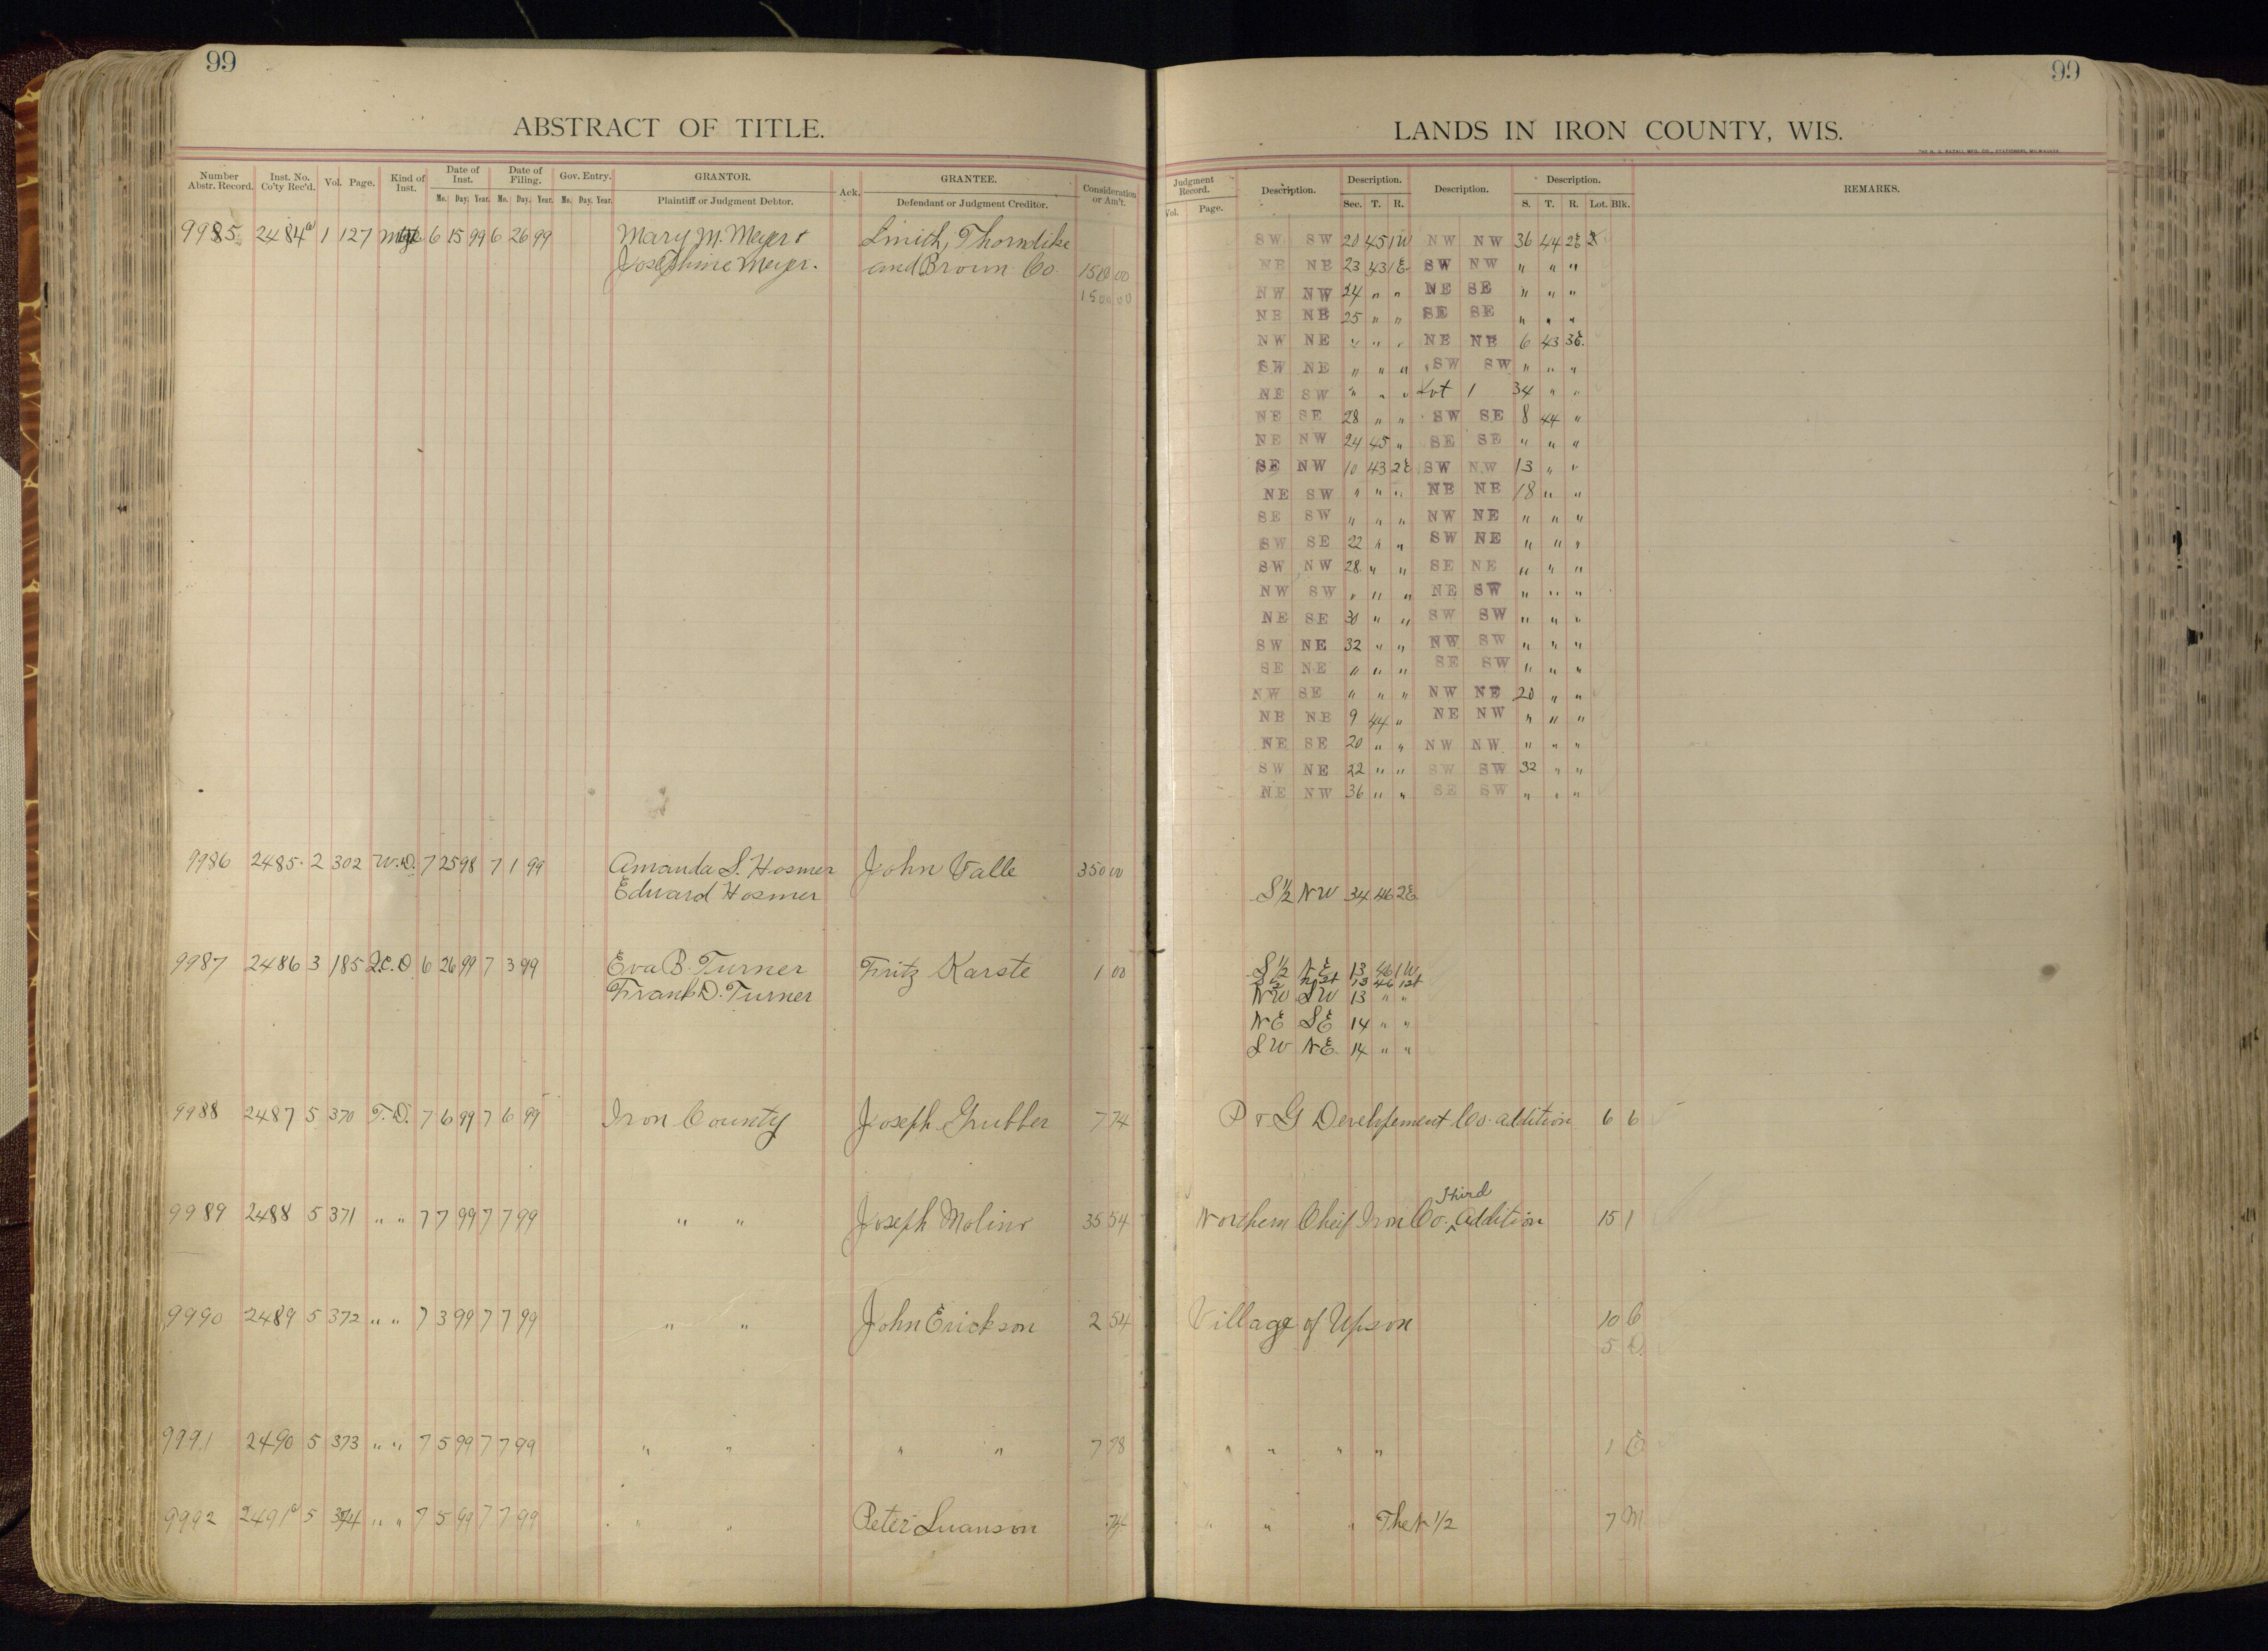 99
ABSTRACT OF TITLE.
Number Abstr. Record. Inst. No. Co'ty Rec'd. Vol. Page. Kind of Inst. Date of Inst. Date of Filing. Gov. Entry. GRANTOR. Ack. GRANTEE. Consideration or Am't.
Mo. Day. Year. Mo. Day. Year. Mo. Day. Year. Plaintiff or Judgment Debtor. Defendant or Judgment Creditor.
9985 2484 a 1 127 Mtge 6 15 99 6 26 99 Mary M. Meyer & Smith, Thorndike
Josephine Meyer. and Brown Co. 1500 00
1500 00
9986 2485 2 302 W.D. 7 25 98 7 1 99 Amanda S. Hosmer John Valle 350 00
Edward Hosmer
9987 2486 3 185 Q.C.D 6 26 99 7 3 99 Eva B. Turner Fritz Karste 1 00
Frank D. Turner
9988 2487 5 370 T.D. 7 6 99 7 6 99 Iron County Joseph Grubber 7 74
9989 2488 5 371 " " 7 7 99 7 7 99 " " Joseph Molino 35 54
9990 2489 5 372 " " 7 3 99 7 7 99 " " John Erickson 2 54
9991 2490 5 373 " " 7 5 99 7 7 99 " " " " 7 78
9992 2491 a 5 374 " " 7 5 99 7 7 99 " " Peter Swanson 74
99
LANDS IN IRON COUNTY, WIS.
Judgment Record. Description. Description. Description. Description. REMARKS.
Vol. Page. Sec. T. R. S. T. R. Lot. Blk.
SW SW 20 45 1W NW NW 36 44 2E
NE NE 23 43 1E SW NW " " "
NW NW 24 " " NE SE " " "
NE NE 25 " " SE SE " " "
NW NE " " " NE NE 6 43 3E.
SW NE " " " SW SW " " "
NE SW " " " Lot 1 34 " "
NE SE 28 " " SW SE 8 44 "
NE NW 24 45 " SE SE " " "
SE NW 10 43 2E SW NW 13 " "
NE SW " " " NE NE 18 " "
SE SW " " " NW NE " " "
SW SE 22 " " SW NE " " "
SW NW 28 " " SE NE " " "
NW SW " " " NE SW " " "
NE SE 30 " " SW SW " " "
SW NE 32 " " NW SW " " "
SE NE " " " SE SW " " "
NW SE " " " NW NE 20 " "
NE NE 9 44 " NE NW " " "
NE SE 20 " " NW NW " " "
SW NE 22 " " SW SW 32 " "
NE NW 36 " " SE SW " " "
S 1/2 NW 34 46 2E
S 1/2 NE 13 46 1W
NW SW 13 " "
NE SE 14 " "
SW NE 14 " "
P & G Developement Co. addition 6 6
Third
Northern Cheif Iron Co. ^ Addition 15 1
Village of Upson 10 C
5 D.
" " " " 1 E
" " " The N 1/2 7 M